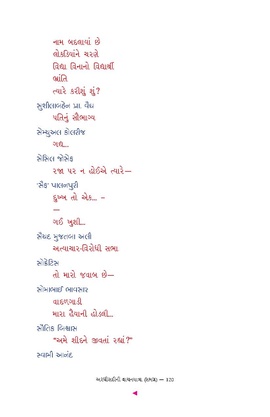 નામ બદલાવાં છે
લોકડિવાંને ચરણે
વિદ્યા વિનાનો વિદ્યાર્થી
ભ્રાંતિ
ત્યારે કરીશું શું?
સુશીલાબહેન પ્રા. વૈદ્ય
પતિનું સૌભાગ્ય
સેમ્યુઅલ કોલરીજ
ગદ્ય...
સેસિલ જોસેફ
રજા પર ન હોઈએ ત્યારે—
'સૈફ' પાલનપુરી
દુઃખ તો એક... -
—
ગઈ ખુશી...
સૈયદ મુજતબા અલી
અત્યાચાર-વિરોધી સભા
સોક્રેટિસ
તો મારો જવાબ છે—
સોમાભાઈ ભાવસાર
વાદળગાડી
મારા હૈયાની હોડલી...
સૌતિક બિશ્વાસ
"અમે શીદને જીવતાં રહ્યાં?"
સ્વામી આનંદ
અરધીસદીની વાચનયાત્રા (સમગ્ર) — 120